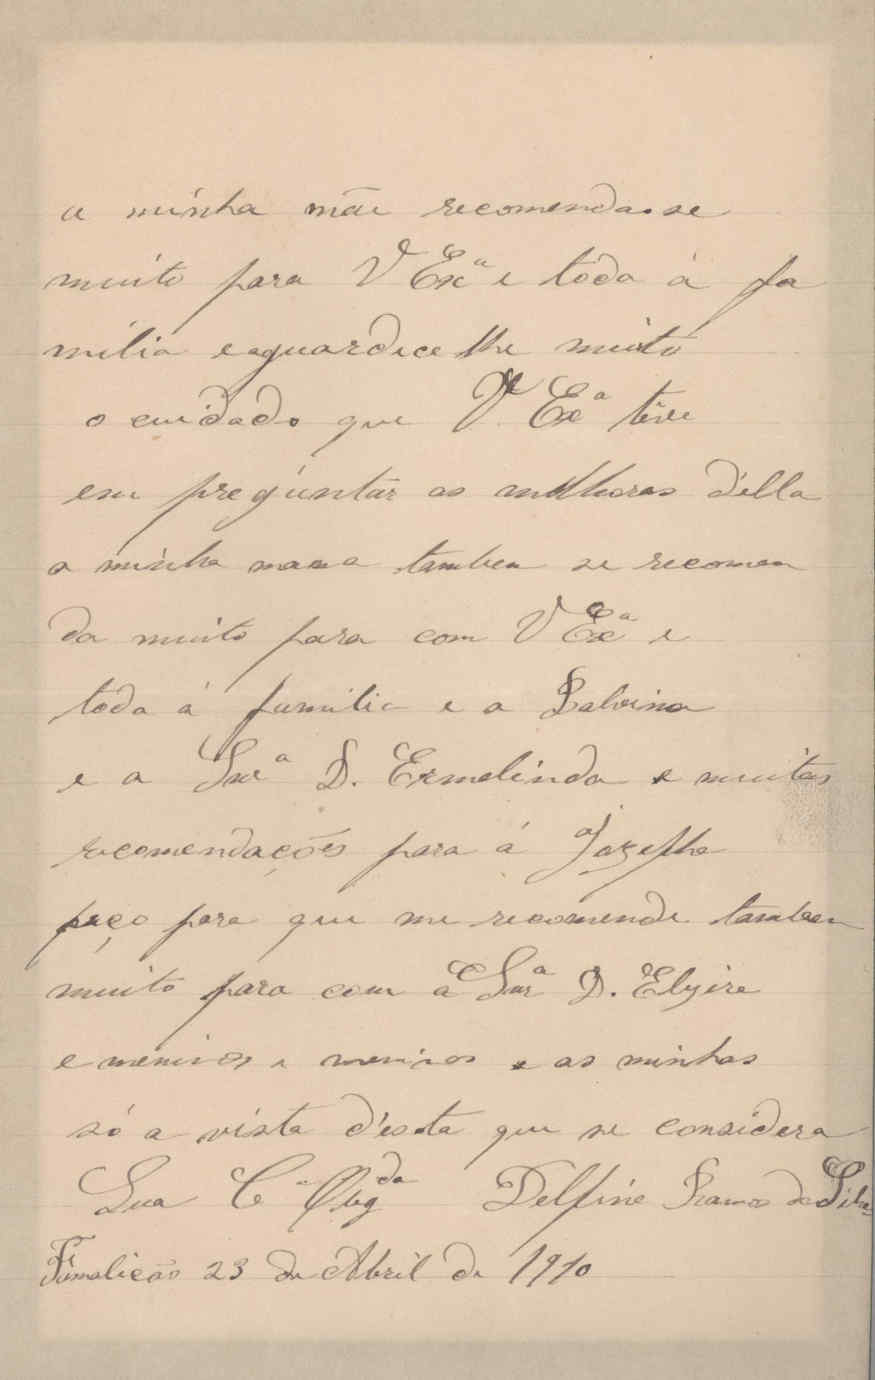 a minha mãi recomenda-se
muito para V Exª e tôda á fa
milia e aguardece lhe muito
o cuidado que V. Exª teve
em preguntar as melhoras d'ella
a minha mana tambem se recomen
da muito para com V Exª e
toda á familia e a Balbina
e a Snrª D. Ermelinda e muitas
recomendações para á Jozepha
peço para que me recomende tambem
muito para com a Snrª D. Elzira
e meninos e meninas e as minhas
só a vista d'esta que se considera
Sua Cª Obgda Delfina Ramos da Silva
Famalicão 23 de Abril de 1910